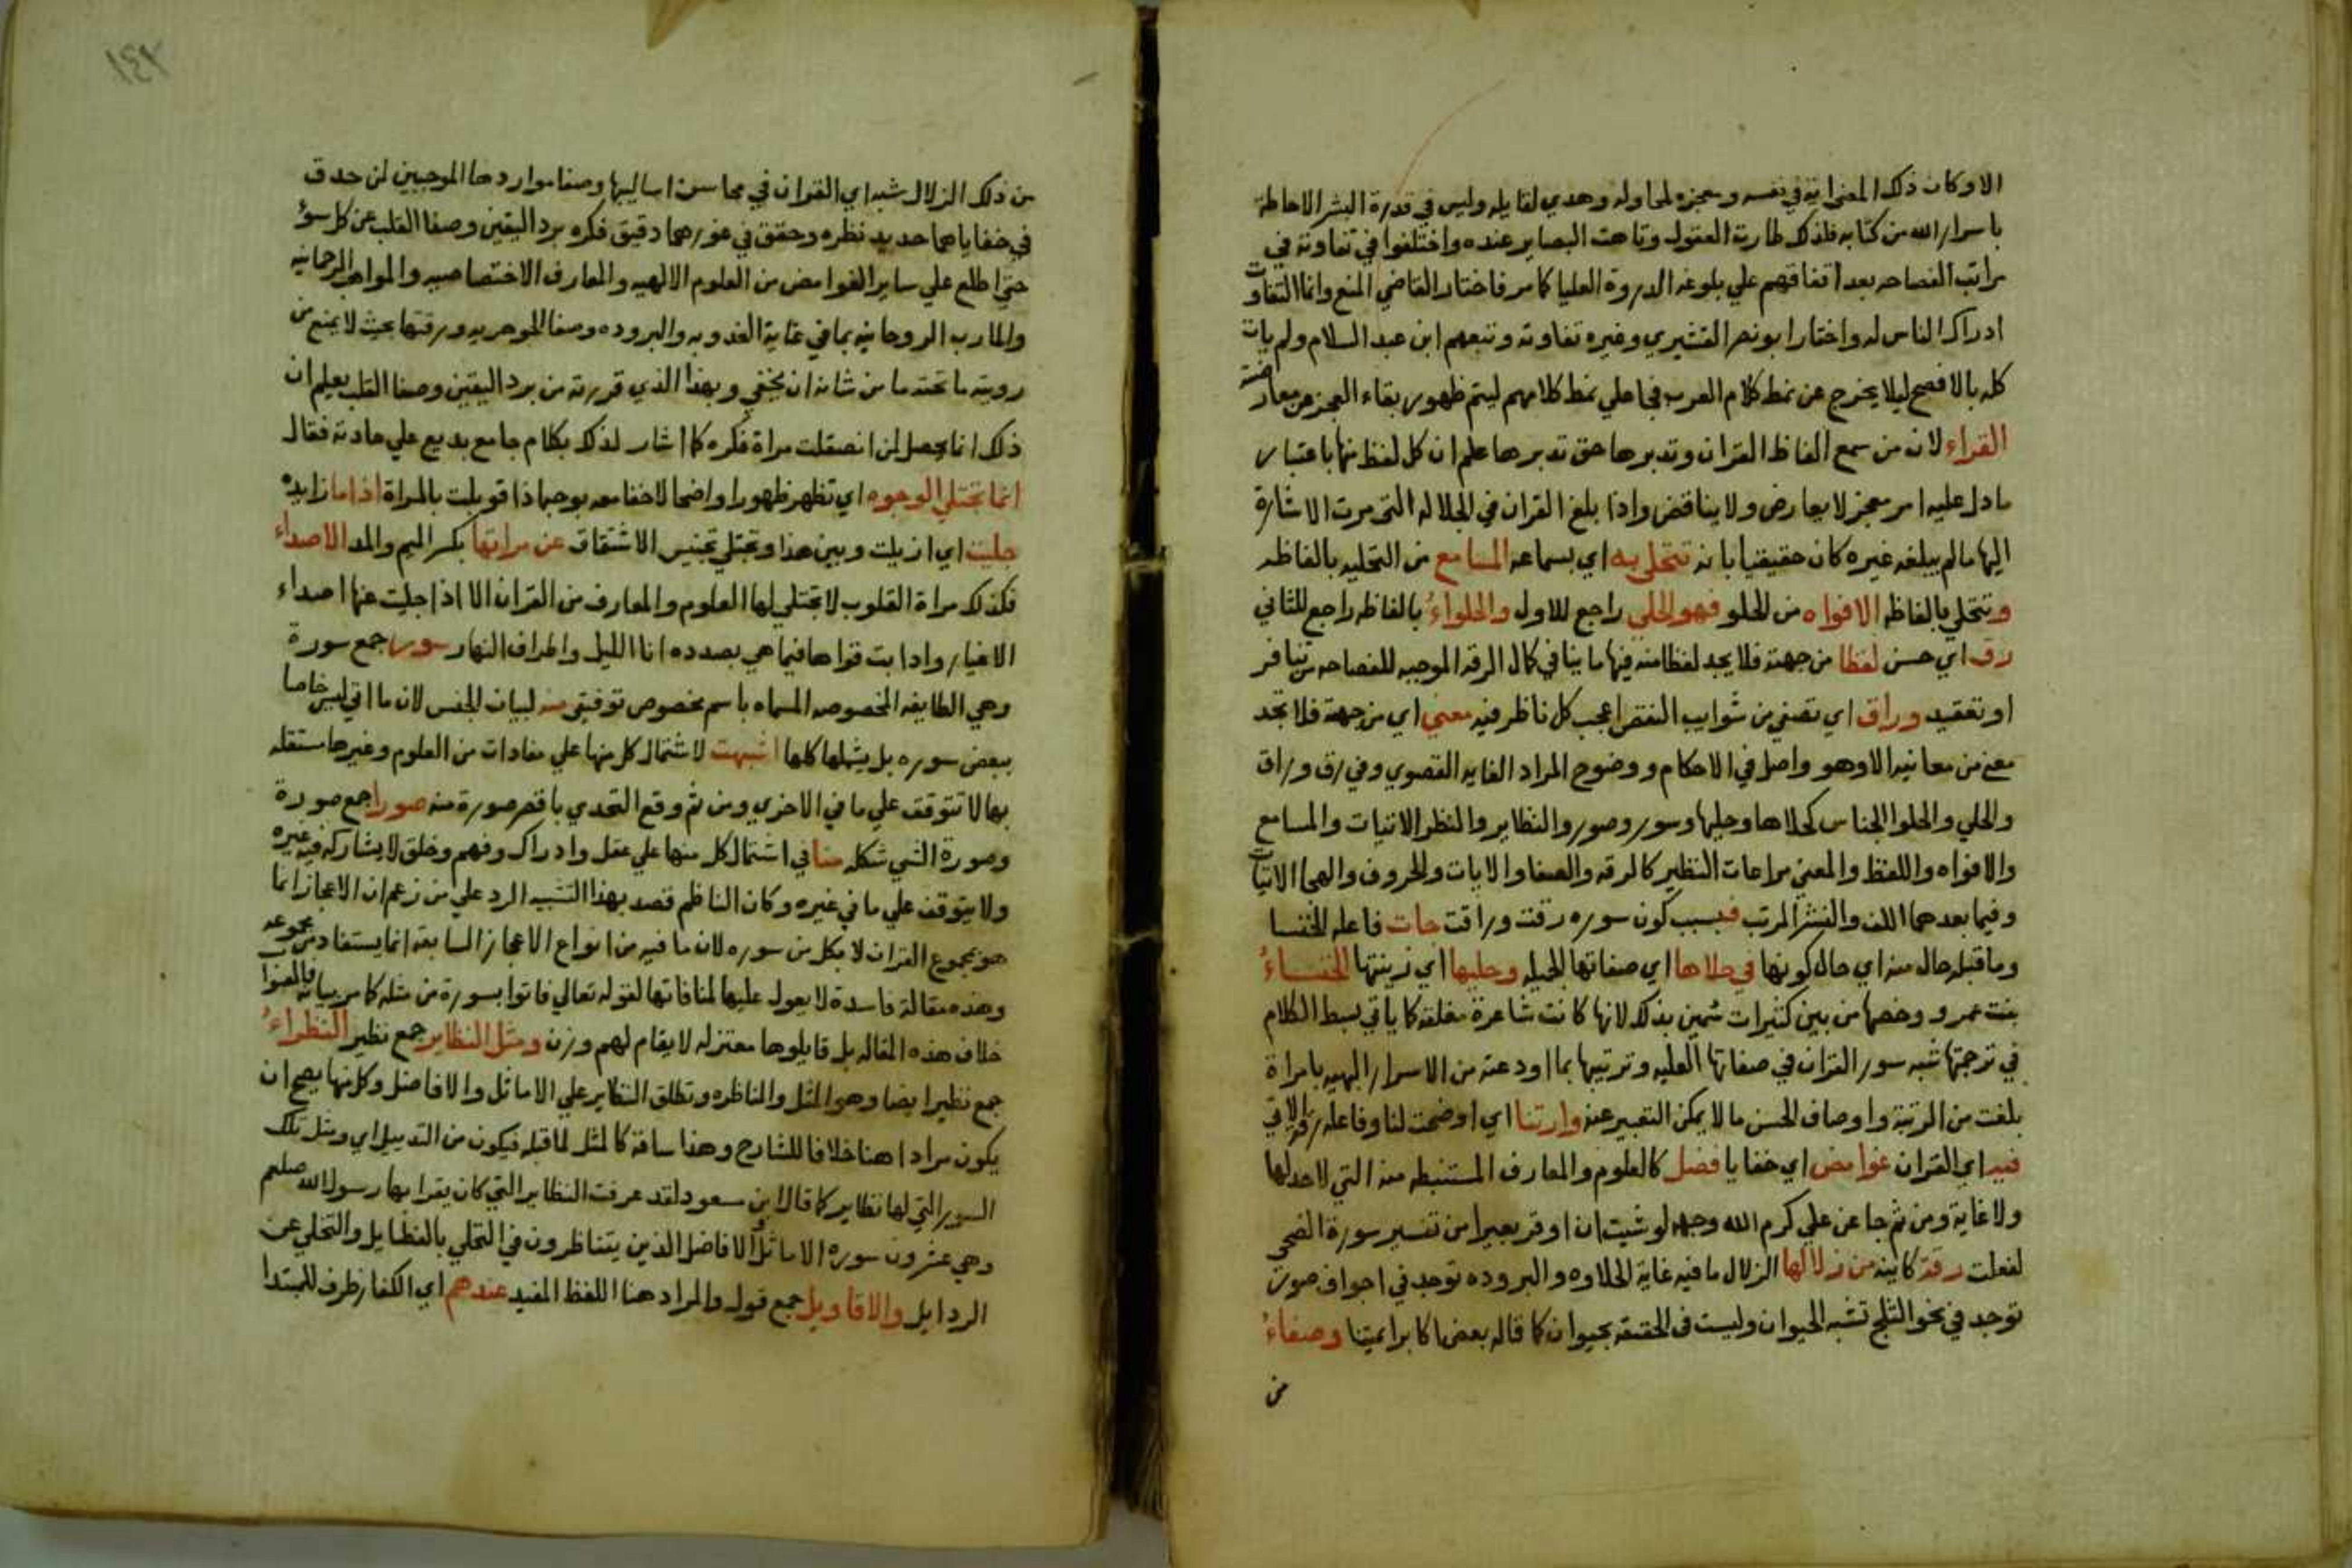 الا وكان ذلك المعنى اية في نفسه ومعجزه لمحاوله وهدي لقايله وليس في قدرة البشر الاحاطة
باسرار الله من كتابه فلذلك طارت العقول وتاهت البصاير عنده واختلفوا في تفاوته في
مراتب الفصاحه بعد اتفاقهم علي بلوغه الدروة العليا كما مر فاختار القاضي المنع وانما التفاوت
ادراك الناس له واختار ابو نصر القشيري وغيره تفاوته وتبعهم ابن عبد السلام ولم يات
كله بالافصح ليلا يخرج عن نمط كلام العرب فجا علي نمط كلامهم ليتم ظهور بقاء العجز عن معارضته
القراء لان من سمع الفاظ القران وتدبرها حق تدبرها علم ان كل لفظ منها باعتبار
ما دل عليه امر معجز لا يعارض ولا يناقض واذا بلغ القران في الجلاله التي مرت الاشارة
اليها ما لم يبلغه غيره كان حقيقيا بانه تتحلى به اي بسماعه المسامع من التحليه بالفاظه
وتتحلي بالفاظه الافواه من الحلو فهو الحلي راجع للاول والحلواء بالفاظه راجع للثاني
رق اي حسن لفظا من جهته فلا يجد لفظا منه فيها ما ينافي كمال الرقه الموجبه للفصاحه من تنافر
او تعقيد وراق اي تصفي من شوايب النقص اعجب كل ناظر فيه معنى اي من جهته فلا تجد
معني من معانيه الا وهو واصل في الاحكام ووضوح المراد الغايه القصوي وفي رق وراق
والحلي والحلوا الجناس كحلاها وحليها وسور وصور والنظاير والنظرا لاتيات والمسامع
والافواه واللفظ والمعني مراعات النظير كالرقه والصفا والايات والحروف والهجا الاتيات
وفيما بعدهما اللف والنشر المرتب فبسبب كون سوره رقت وراقت جات فاعله الخنسا
وما قبله حال منه اي حال كونها في حلاها اي صفاتها الجميله وحليها اي زينتها الخنساء
بنت عمرو وخصها من بين كثيرات سمين بذلك لانها كانت شاعرة مفلقه كما ياتي بسط الكلام
في ترجمتها شبه سور القران في صفاتها العليه وترتيبها بما اودعته من الاسرار البهيه بامراة
بلغت من الرتبة واوصاف الحسن ما لا يمكن التعبير عنه وارتنا اي اوضحت لنا وفاعله رقة الاتي
فيه اي القران غوامض اي خفايا فضل كالعلوم والمعارف المستنبطه منه التي لا حد لها
ولا غاية ومن ثم جا عن علي كرم الله وجهه لو شيت ان اوقر بعيرا من تفسير سورة الضحي
لفعلت رقة كاينة من زلالها الزلال ما فيه غاية الحلاوه والبروده توجد في اجواف صور
توجد في نحو الثلج تشبه الحيوان وليست في الحقيقه بحيوان كما قاله بعض اكابر ايمتنا وصفاء
من
من ذلك الزلال شبه اي القران في محاسن اساليبها وصفا مواردها الموجبين لمن حدق
في خفاياهما حديد نظره وحقق في غورهما دقيق فكره برد اليقين وصفا القلب عن كل سوء
حتي اطلع علي ساير الغوامض من العلوم الالهيه والمعارف الاختصاصيه والمواهب الرحمانيه
والمارب الروحانيه بما في غاية العذوبه والبروده وصفا الجوهريه ورقتها بحيث لا يمنع من
روية ما تحته ما من شانه ان يخفي وبهذا الذي قررته من برد اليقين وصفا القلب يعلم ان
ذلك انما يحصل لمن انصقلت مراة فكره كما اشار لذلك بكلام جامع بديع علي عادته فقال
انما تجتلي الوجوه اي تظهر ظهورا واضحا لا خفا معه بوجه اذا قوبلت بالمراة اذا ما زايده
جليت اي ازيلت وبين هذا وتجتلي تجنيس الاشتقاق عن مراتها بكسر الميم والمد الاصداء
فكذلك مراة القلوب لا تجتلي لها العلوم والمعارف من القران الا اذا جليت عنها اصداء
الاغيار وادابت قواها فيما هي بصدده انا الليل واطراف النهار سور جمع سورة
وهي الطايفه المخصوصه المسماه باسم مخصوص توقيفي منه لبيان الجنس لان ما اتي ليس خاصا
ببعض سوره بل يشملها كلها اشبهت لاشتمال كل منها علي مفادات من العلوم وغيرها مستقله
بها لا تتوقف علي ما في الاخري ومن ثم وقع التحدي باقصر صورة منه صورا جمع صورة
وصورة الشي شكله منا في اشتمال كل منها علي عقل وادراك وفهم وخلق لا يشاركه فيه غيره
ولا يتوقف علي ما في غيره وكان الناظم قصد بهذا التشبيه الرد علي من زعم ان الاعجاز انما
هو بمجموع القران لا بكل من سوره لان ما فيه من انواع الاعجاز السابقه انما يستفاد من مجموعه
وهذه مقالة فاسدة لا يعول عليها لمنافاتها لقوله تعالي فاتوا بسورة من مثله كما مر بيانه
خلاف هذه المقاله بل قايلوها معتزله لا يقام لهم وزن ومثل النظاير جمع نظير النظراء
جمع نظير ايضا وهو المثل والمناظره وتطلق النظاير علي الاماثل والافاضل وكل منها يصح ان
يكون مرادا هنا خلافا للشارح وهذا ساقه كالمثل لما قبله فيكون من التذييل اي ومثل تلك
السور التي لها نظاير كما قال ابن سعود لقد عرفت النظاير التي كان يقرا بها رسول الله صلعم
وهي عشرون سوره الاماثل الافاضل الذين يتناظرون في التحلي بالفضايل والتخلي عن
الردايل والاقاويل جمع قول والمراد هنا اللفظ المفيد عندهم اي الكفار ظرف للمبتدا